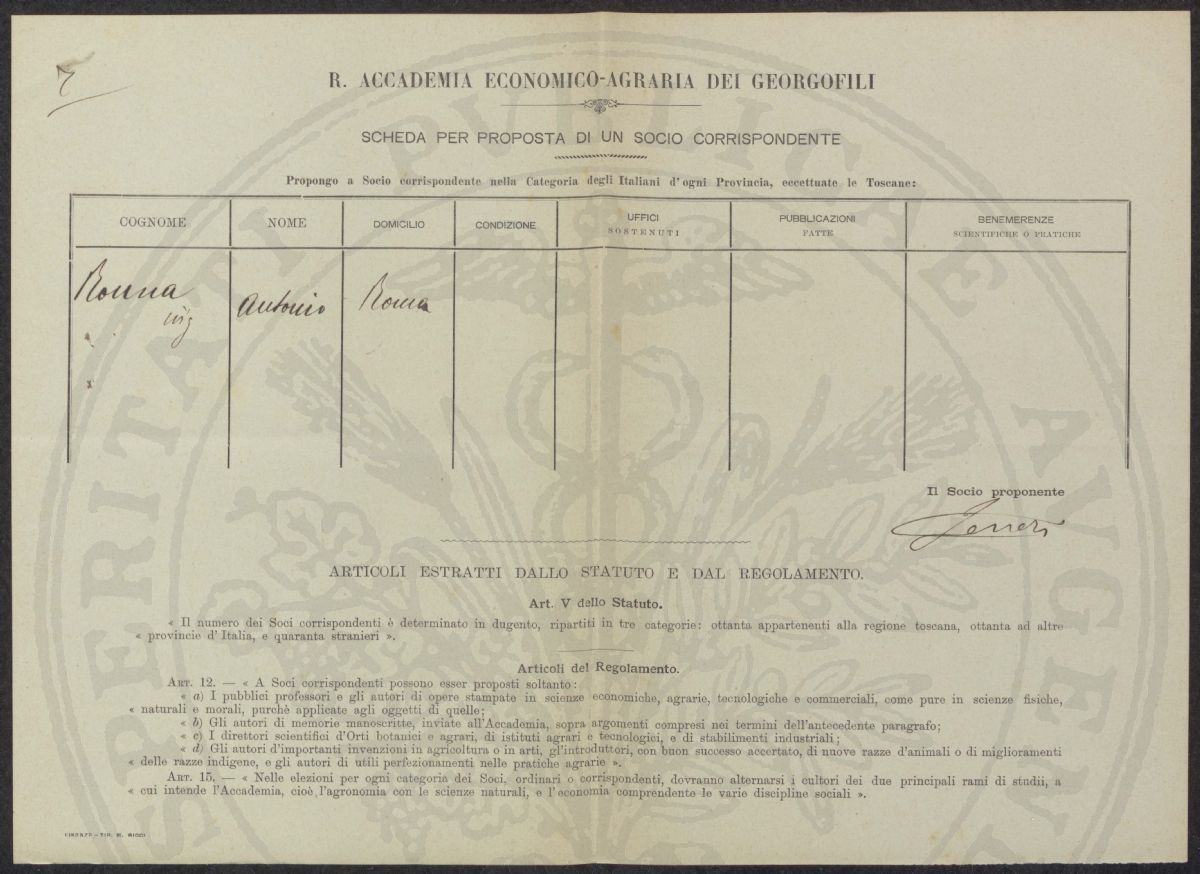 7
R. ACCADEMIA ECONOMICO-AGRARIA DEI GEORGOFILI
SCHEDA PER PROPOSTA DI UN SOCIO CORRISPONDENTE
Propongo a Socio corrispondente nella Categoria degli Italiani d'ogni Provincia, eccettuate le Toscane:
COGNOME NOME DOMICILIO CONDIZIONE UFFICI SOSTENUTI PUBBLICAZIONI FATTE BENEMERENZE SCIENTIFICHE O PRATICHE
Ronna Antonio Roma
ing
Il Socio proponente
ARTICOLI ESTRATTI DALLO STATUTO E DAL REGOLAMENTO.
Art. V dello Statuto.
« Il numero dei Soci corrispondenti è determinato in dugento, ripartiti in tre categorie: ottanta appartenenti alla regione toscana, ottanta ad altre
« provincie d'Italia, e quaranta stranieri ».
Articoli del Regolamento.
ART. 12. — « A Soci corrispondenti possono esser proposti soltanto:
« a) I pubblici professori e gli autori di opere stampate in scienze economiche, agrarie, tecnologiche e commerciali, come pure in scienze fisiche,
« naturali e morali, purchè applicate agli oggetti di quelle;
« b) Gli autori di memorie manoscritte, inviate all'Accademia, sopra argomenti compresi nei termini dell'antecedente paragrafo;
« c) I direttori scientifici d'Orti botanici e agrari, di istituti agrari e tecnologici, e di stabilimenti industriali;
« d) Gli autori d'importanti invenzioni in agricoltura o in arti, gl'introduttori, con buon successo accertato, di nuove razze d'animali o di miglioramenti
« delle razze indigene, e gli autori di utili perfezionamenti nelle pratiche agrarie ».
ART. 15. — « Nelle elezioni per ogni categoria dei Soci, ordinari o corrispondenti, dovranno alternarsi i cultori dei due principali rami di studii, a
« cui intende l'Accademia, cioè l'agronomia con le scienze naturali, e l'economia comprendente le varie discipline sociali ».
FIRENZE - TIP. M. RICCI
PROSPERITATI PUBLICAE AVGENDAE